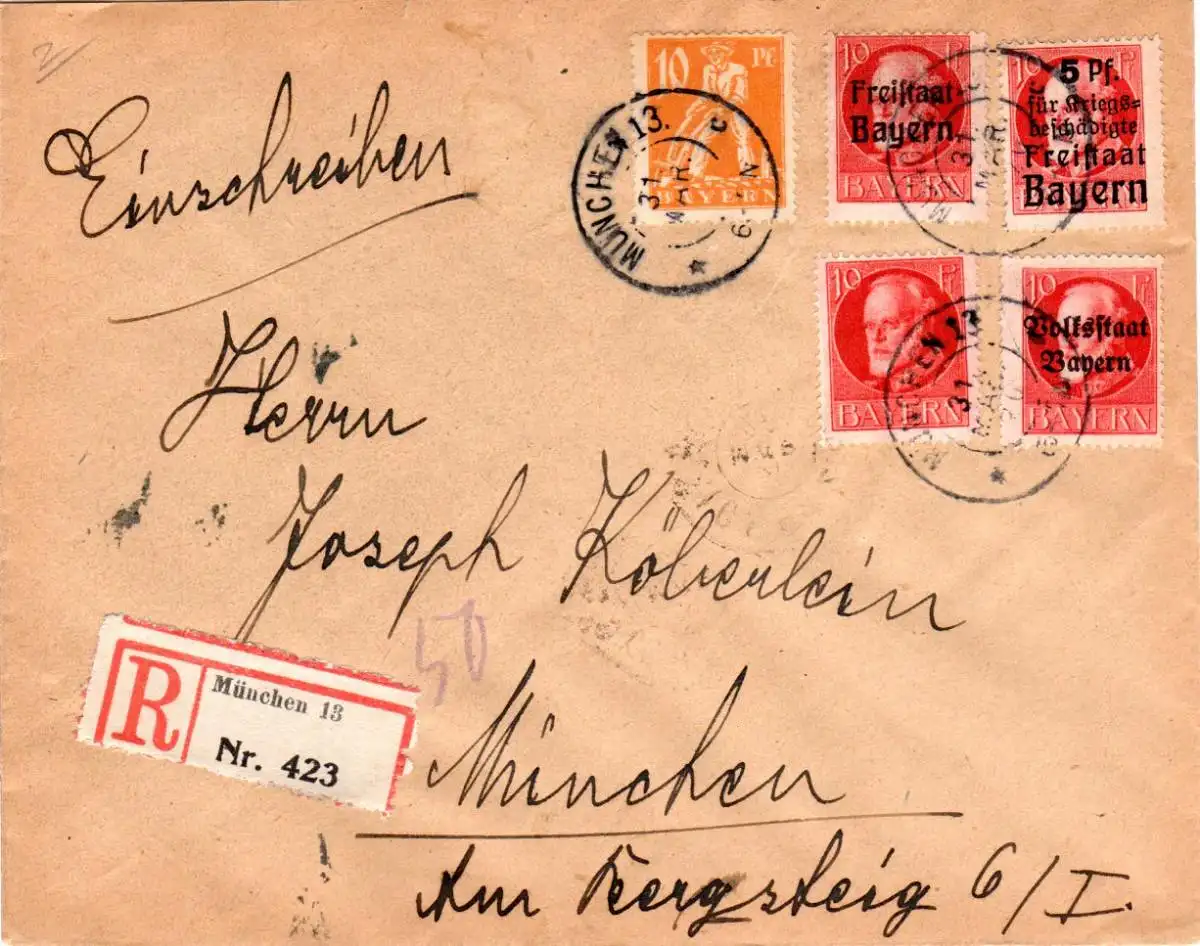 2
Einschreiben
10 Pf
BAYERN
10 Pf
Freistaat
Bayern
BAYERN
10 Pf
5 Pf.
für Kriegs-
beschädigte
Freistaat
Bayern
MÜNCHEN 13. c
31
MAR.
10 Pf
BAYERN
10 Pf
Volksstaat
Bayern
BAYERN
MÜNCHEN 13
31
MAR.
Herrn
Joseph Köberlein
50
R
München 13
Nr. 423
München
Am Bergsteig 6/I.